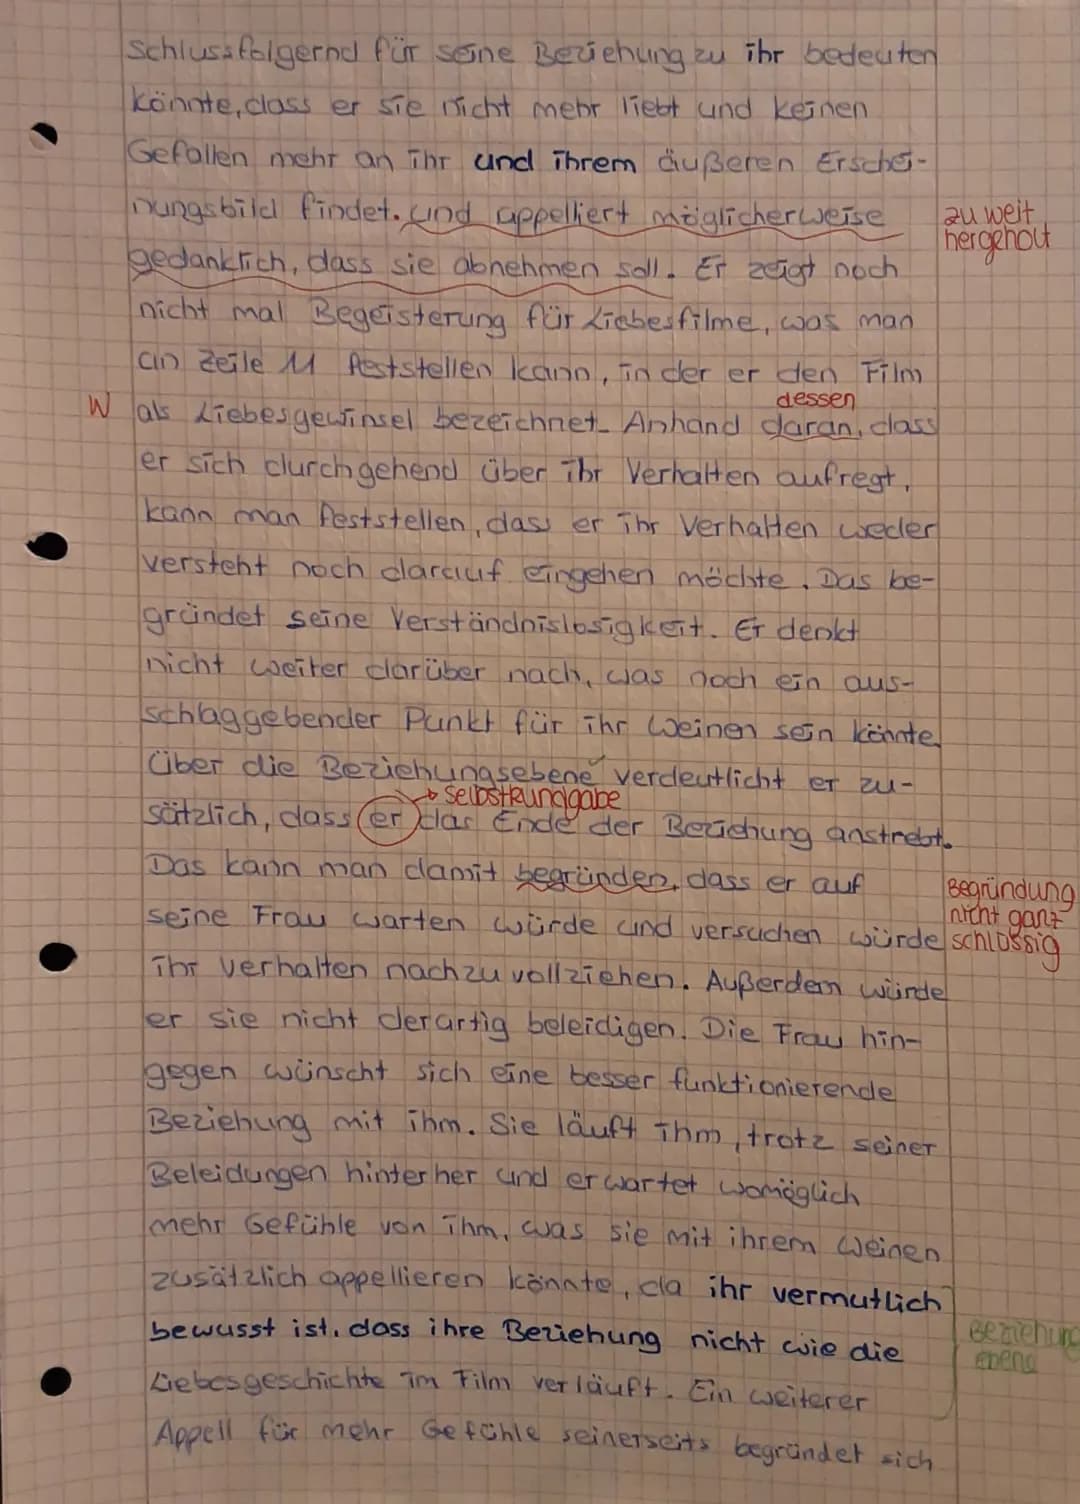 schlussfolgernd für seine Beziehung zu ihr bedeuten
könnte, dass er sie nicht mehr liebt und keinen
Gefallen mehr an ihr und ihrem äußeren Erschei-
nungsbild findet. und appelliert möglicherweise
zu weit
hergeholt
gedanklich, dass sie abnehmen soll. Er zeigt noch
nicht mal Begeisterung für Liebesfilme, was man
an Zeile 11 feststellen kann, in der er den Film
dessen
W als Liebesgewinsel bezeichnet. Anhand daran, dass
er sich durchgehend über ihr Verhalten aufregt,
kann man feststellen, dass er ihr Verhalten weder
versteht noch darauf eingehen möchte. Das be-
gründet seine Verständnislosigkeit. Er denkt
nicht weiter darüber nach, was noch ein aus-
schlaggebender Punkt für ihr Weinen sein könnte.
Über die Beziehungsebene verdeutlicht er zu-
→ Selbstkundgabe
sätzlich, dass er das Ende der Beziehung anstrebt.
Das kann man damit begründen, dass er auf
Begründung
nicht ganz
schlüssig
seine Frau warten würde und versuchen würde
ihr Verhalten nachzuvollziehen. Außerdem würde
er sie nicht derartig beleidigen. Die Frau hin-
gegen wünscht sich eine besser funktionierende
Beziehung mit ihm. Sie läuft ihm, trotz seiner
Beleidungen hinterher und erwartet womöglich
mehr Gefühle von ihm, was sie mit ihrem Weinen
zusätzlich appellieren könnte, da ihr vermutlich
bewusst ist, dass ihre Beziehung nicht wie die
Beziehung
ebene
Liebesgeschichte im Film verläuft. Ein weiterer
Appell für mehr Gefühle seinerseits begründet sich